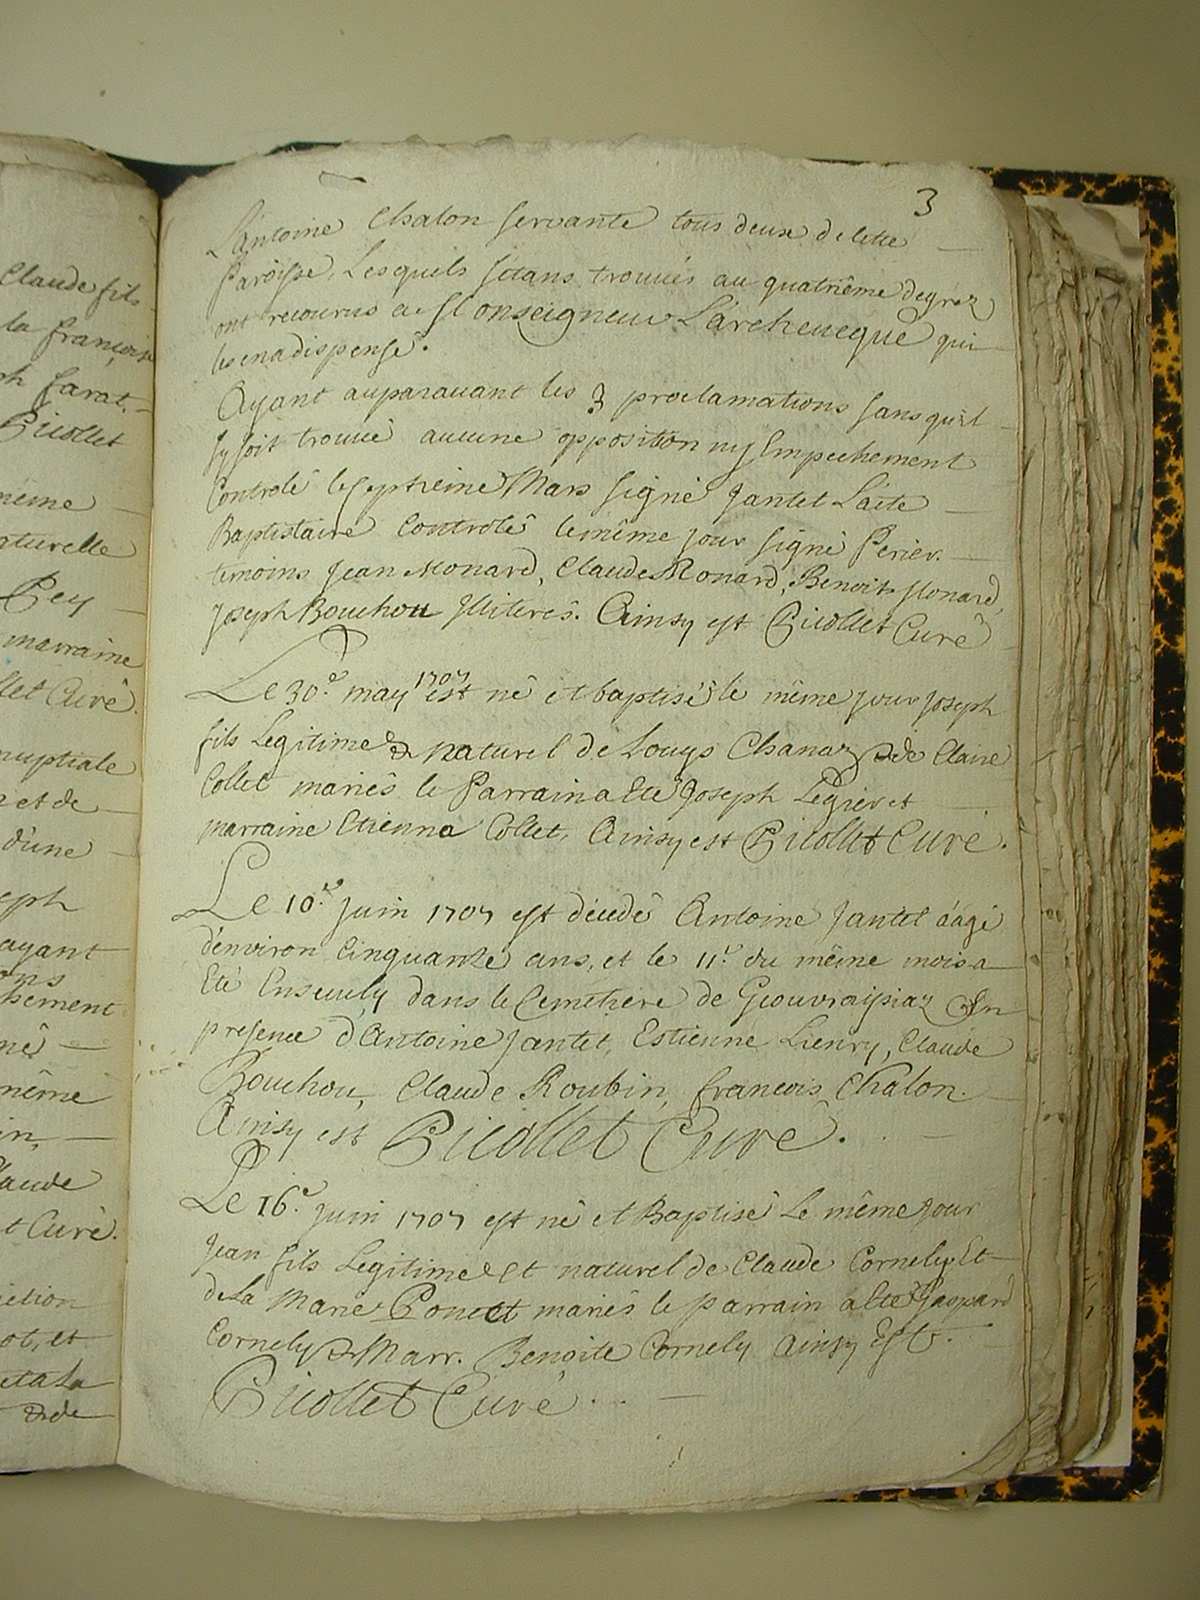 3
L'antoine Chalon servante tous deux de cette
Paroisse, Lesquels sétans trouués au quatriême degrez
ont recourus a Monseigneur L'archeueque qui
les en a dispensé.
Ayant auparauant les 3 proclamations sans qu'il
sy soit trouué aucune opposition ny Empechement
Controlé le septieme Mars signé Jantet L'acte
Baptistaire Controlé le même jour signé Perier.
temoins Jean Monard, Claude Monard, Benoit Monard,
Joseph Bouchou Illiterés. Ainsy est Picollet Curé
Le 30e. may 1707 est né et baptisé le même jour Joseph
fils Legitime & naturel de Louys Chanaz & de Claire
Collet mariés le Parrain a Eté Joseph Legier et
marraine Etienna Collet, Ainsy est Picollet Curé.
Le 10e. Juin 1707 est décedé Antoine Jantet aâgé
d'environ Cinquante ans, et le 11e. du même mois a
Eté Enseuely dans le Cemetière de Geouvraisiaz En
presence d'Antoine Jantet, Estienne Lienry, Claude
Bouchou, Claude Roubin, francois Chalon.
Ainsy est Picollet Curé.
Le 16e. Juin 1707 est né et Baptisé Le même Jour
Jean fils Legitime et naturel de Claude Cornely Et
de La Marie Poncet mariés le parrain a Eté Gaspard
Cornely & Marr. Benoite Cornely Ainsy Est.
Picollet Curé
Claude fils
la françoise
ph farat.
Picollet
même
naturelle
Pey
marraine
llet Curé.
nuptiale
et de
d'une
eph
ayant
ons
chement
né
même
in,
laude
t Curé.
iction
ot, et
et a La
& de